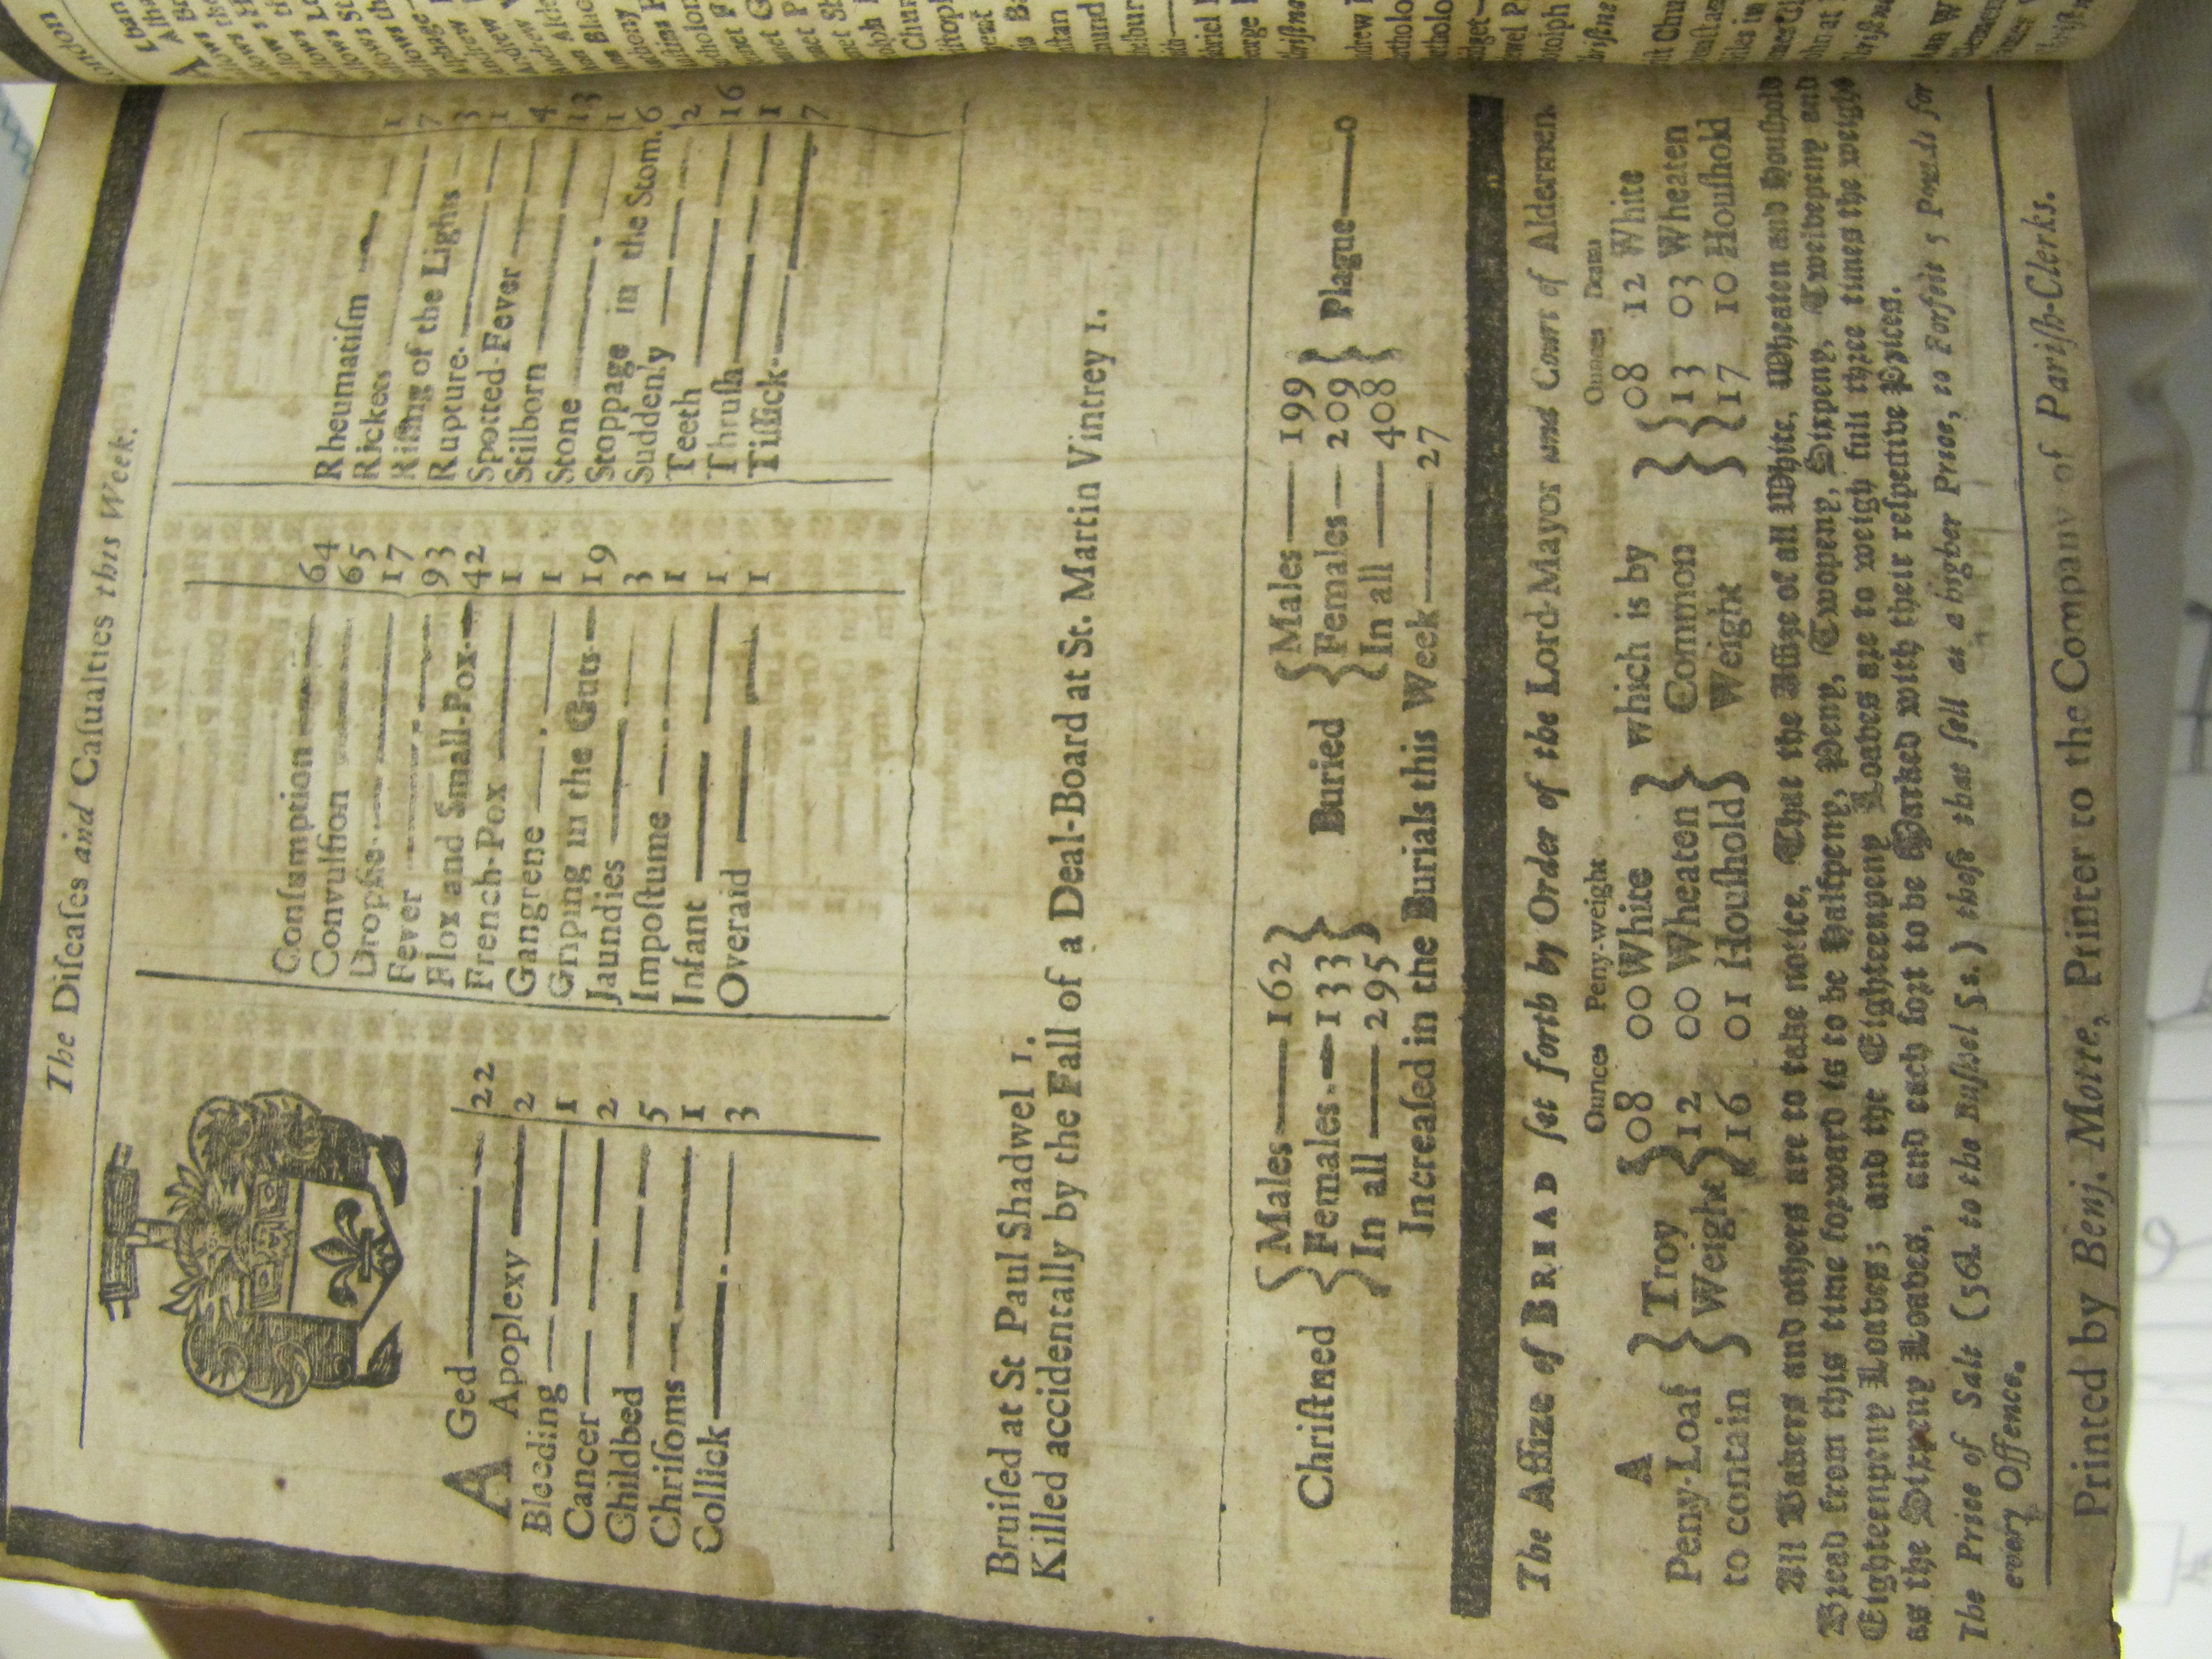 The Diſeaſes and Caſualties this Week.
AGed 22
Apoplexy 2
Bleeding 1
Cancer 2
Childbed 5
Chriſoms 1
Collick 3
Conſumption 64
Convulſion 65
Dropſie 17
Fever 93
Flox and Small-Pox 42
French-Pox 1
Gangrene 1
Griping in the Guts 19
Jaundies 3
Impoſtume 1
Infant 1
Overaid 1
Rheumatiſm 1
Rickets 7
Riſing of the Lights 3
Rupture 1
Spotted-Fever 4
Stilborn 13
Stone 1
Stoppage in the Stom. 6
Suddenly 2
Teeth 16
Thruſh 1
Tiſſick 7
Bruiſed at St Paul Shadwel 1.
Killed accidentally by the Fall of a Deal-Board at St. Martin Vintrey 1.
Chriſtned { Males — 162 Females — 133 In all — 295 } Buried { Males — 199 Females — 209 In all — 408 } Plague — 0
Increaſed in the Burials this Week — 27
The Aſſize of BREAD ſet forth by Order of the Lord-Mayor and Court of Aldermen.
Ounces Peny-weight Ounces Drams
A } Troy { 08 00 White } which is by { 08 12 White
Peny-Loaf } Weight { 12 00 Wheaten } Common { 13 03 Wheaten
to contain } { 16 01 Houſhold } Weight { 17 10 Houſhold
All Bakers and others are to take notice, That the Aſſize of all White, Wheaten and Houſhold
Bread from this time forward is to be Halfpeny, Peny, Twopeny, Sixpeny, Twelvepeny and
Eighteenpeny Loaves; and the Eighteenpeny Loaves are to weigh full three times the weight
as the Sixpeny Loaves, and each ſort to be Marked with their reſpective Prices.
The Price of Salt (56l. to the Buſhel 5s.) thoſe that ſell at a higher Price, to Forfeit 5 Pounds for
every Offence.
Printed by Benj. Motte, Printer to the Company of Pariſh-Clerks.